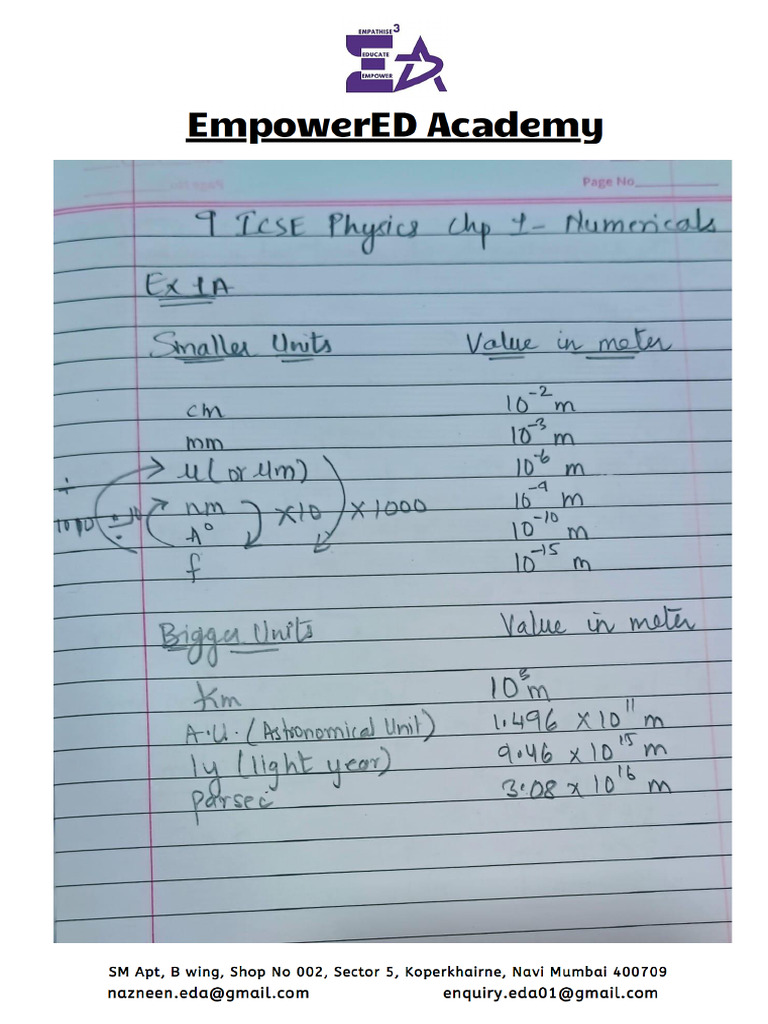 EMPATHISE 3
EDUCATE
EMPOWER
EmpowerED Academy
Page No
9 ICSE Physics Chp 1- Numericals
Ex 1A
Smaller Units Value in meter
cm 10⁻² m
mm 10⁻³ m
μ (or μm) 10⁻⁶ m
÷ 1000 ÷ 10 nm ×10 ×1000 10⁻⁹ m
A° 10⁻¹⁰ m
f 10⁻¹⁵ m
Bigger Units Value in meter
Km 10³ m
A.U. (Astronomical Unit) 1.496 × 10¹¹ m
ly (light year) 9.46 × 10¹⁵ m
Parsec 3.08 × 10¹⁶ m
SM Apt, B wing, Shop No 002, Sector 5, Koperkhairne, Navi Mumbai 400709
nazneen.eda@gmail.com enquiry.eda01@gmail.com